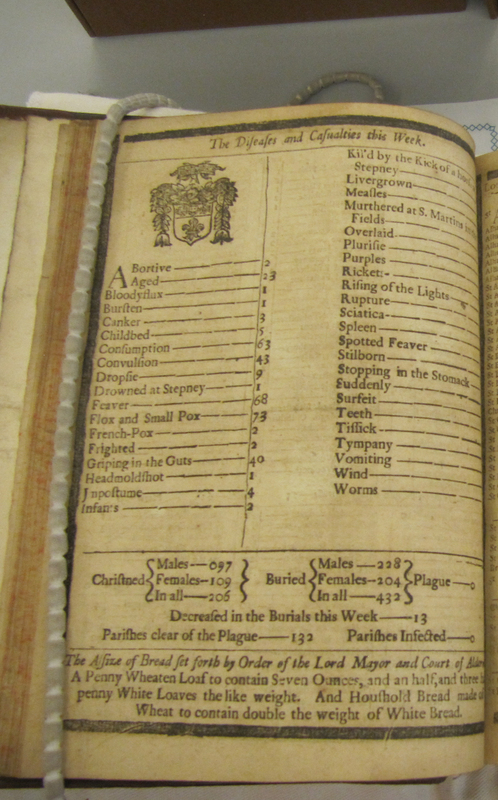 The Diseases and Casualties this Week.
ABortive — 2
Aged — 23
Bloodyflux — 1
Bursten — 1
Canker — 3
Childbed — 5
Consumption — 63
Convulsion — 43
Dropsie — 9
Drowned at Stepney — 1
Feaver — 68
Flox and Small Pox — 73
French-Pox — 2
Frighted — 2
Griping in the Guts — 40
Headmoldshot — 1
Jmpostume — 4
Infants — 2
Kil'd by the Kick of a
Stepney
Livergrown
Measles
Murthered at S. Martins
Fields
Overlaid
Plurisie
Purples
Ricket
Rising of the Lights
Rupture
Sciatica
Spleen
Spotted Feaver
Stilborn
Stopping in the Stomack
Suddenly
Surfeit
Teeth
Tissick
Tympany
Vomiting
Wind
Worms
Males — 097 Males — 228
Christned Females — 109 Buried Females — 204 Plague — 0
In all — 206 In all — 432
Decreased in the Burials this Week — 13
Parishes clear of the Plague — 132 Parishes Infected — 0
The Assize of Bread set forth by Order of the Lord Mayor and Court of
A Penny Wheaten Loaf to contain Seven Ounces, and an half, and three
penny White Loaves the like weight. And Houshold Bread made
Wheat to contain double the weight of White Bread.